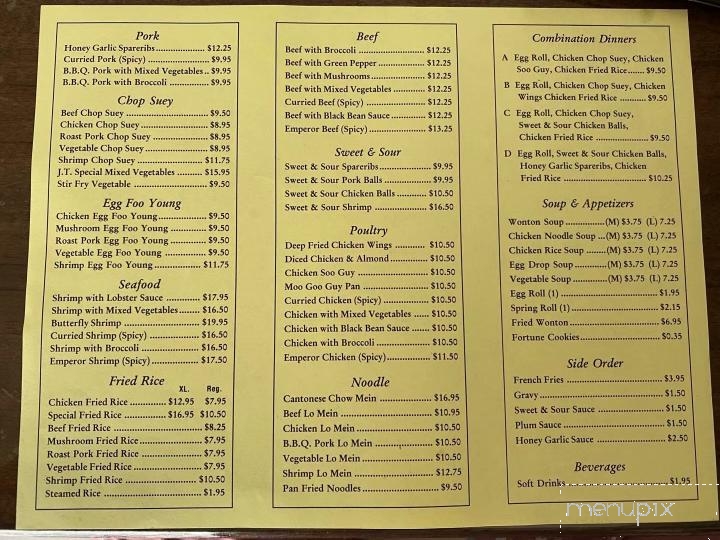 Pork
Honey Garlic Spareribs.................... $12.25
Curried Pork (Spicy) ....................... $9.95
B.B.Q. Pork with Mixed Vegetables.. $9.95
B.B.Q. Pork with Broccoli ................ $9.95
Chop Suey
Beef Chop Suey ............................ $9.50
Chicken Chop Suey........................ $8.95
Roast Pork Chop Suey .................... $8.95
Vegetable Chop Suey...................... $8.95
Shrimp Chop Suey ........................ $11.75
J.T. Special Mixed Vegetables ......... $15.95
Stir Fry Vegetable ......................... $9.50
Egg Foo Young
Chicken Egg Foo Young................. $9.50
Mushroom Egg Foo Young ............. $9.50
Roast Pork Egg Foo Young ............. $9.50
Vegetable Egg Foo Young .............. $9.50
Shrimp Egg Foo Young.................. $11.75
Seafood
Shrimp with Lobster Sauce ............ $17.95
Shrimp with Mixed Vegetables........ $16.50
Butterfly Shrimp ........................... $19.95
Curried Shrimp (Spicy) .................. $16.50
Shrimp with Broccoli ..................... $16.50
Emperor Shrimp (Spicy)................. $17.50
Fried Rice
XL. Reg.
Chicken Fried Rice............. $12.95 $7.95
Special Fried Rice .............. $16.95 $10.50
Beef Fried Rice .............................. $8.25
Mushroom Fried Rice...................... $7.95
Roast Pork Fried Rice...................... $7.95
Vegetable Fried Rice........................ $7.95
Shrimp Fried Rice .......................... $10.50
Steamed Rice ................................. $1.95
Beef
Beef with Broccoli ........................ $12.25
Beef with Green Pepper.................. $12.25
Beef with Mushrooms.................... $12.25
Beef with Mixed Vegetables ............ $12.25
Curried Beef (Spicy) ...................... $12.25
Beef with Black Bean Sauce............. $12.25
Emperor Beef (Spicy)..................... $13.25
Sweet & Sour
Sweet & Sour Spareribs................... $9.95
Sweet & Sour Pork Balls ................. $9.95
Sweet & Sour Chicken Balls ............ $10.50
Sweet & Sour Shrimp .................... $16.50
Poultry
Deep Fried Chicken Wings ............ $10.50
Diced Chicken & Almond............... $10.50
Chicken Soo Guy .......................... $10.50
Moo Goo Guy Pan ........................ $10.50
Curried Chicken (Spicy) ................. $10.50
Chicken with Mixed Vegetables ...... $10.50
Chicken with Black Bean Sauce ...... $10.50
Chicken with Broccoli .................... $10.50
Emperor Chicken (Spicy)................ $11.50
Noodle
Cantonese Chow Mein .................. $16.95
Beef Lo Mein ............................... $10.95
Chicken Lo Mein .......................... $10.50
B.B.Q. Pork Lo Mein .................... $10.50
Vegetable Lo Mein ........................ $10.50
Shrimp Lo Mein ........................... $12.75
Pan Fried Noodles.......................... $9.50
Combination Dinners
A Egg Roll, Chicken Chop Suey, Chicken
Soo Guy, Chicken Fried Rice...... $9.50
B Egg Roll, Chicken Chop Suey, Chicken
Wings Chicken Fried Rice ......... $9.50
C Egg Roll, Chicken Chop Suey,
Sweet & Sour Chicken Balls,
Chicken Fried Rice .................... $9.50
D Egg Roll, Sweet & Sour Chicken Balls,
Honey Garlic Spareribs, Chicken
Fried Rice ............................... $10.25
Soup & Appetizers
Wonton Soup .............(M) $3.75 (L) 7.25
Chicken Noodle Soup ...(M) $3.75 (L) 7.25
Chicken Rice Soup .......(M) $3.75 (L) 7.25
Egg Drop Soup ...........(M) $3.75 (L) 7.25
Vegetable Soup ............(M) $3.75 (L) 7.25
Egg Roll (1) .................................. $1.95
Spring Roll (1)............................... $2.15
Fried Wonton................................ $6.95
Fortune Cookies............................. $0.35
Side Order
French Fries .................................. $3.95
Gravy........................................... $1.50
Sweet & Sour Sauce ....................... $1.50
Plum Sauce................................... $1.50
Honey Garlic Sauce ....................... $2.50
Beverages
Soft Drinks................................... $1.95
menupix